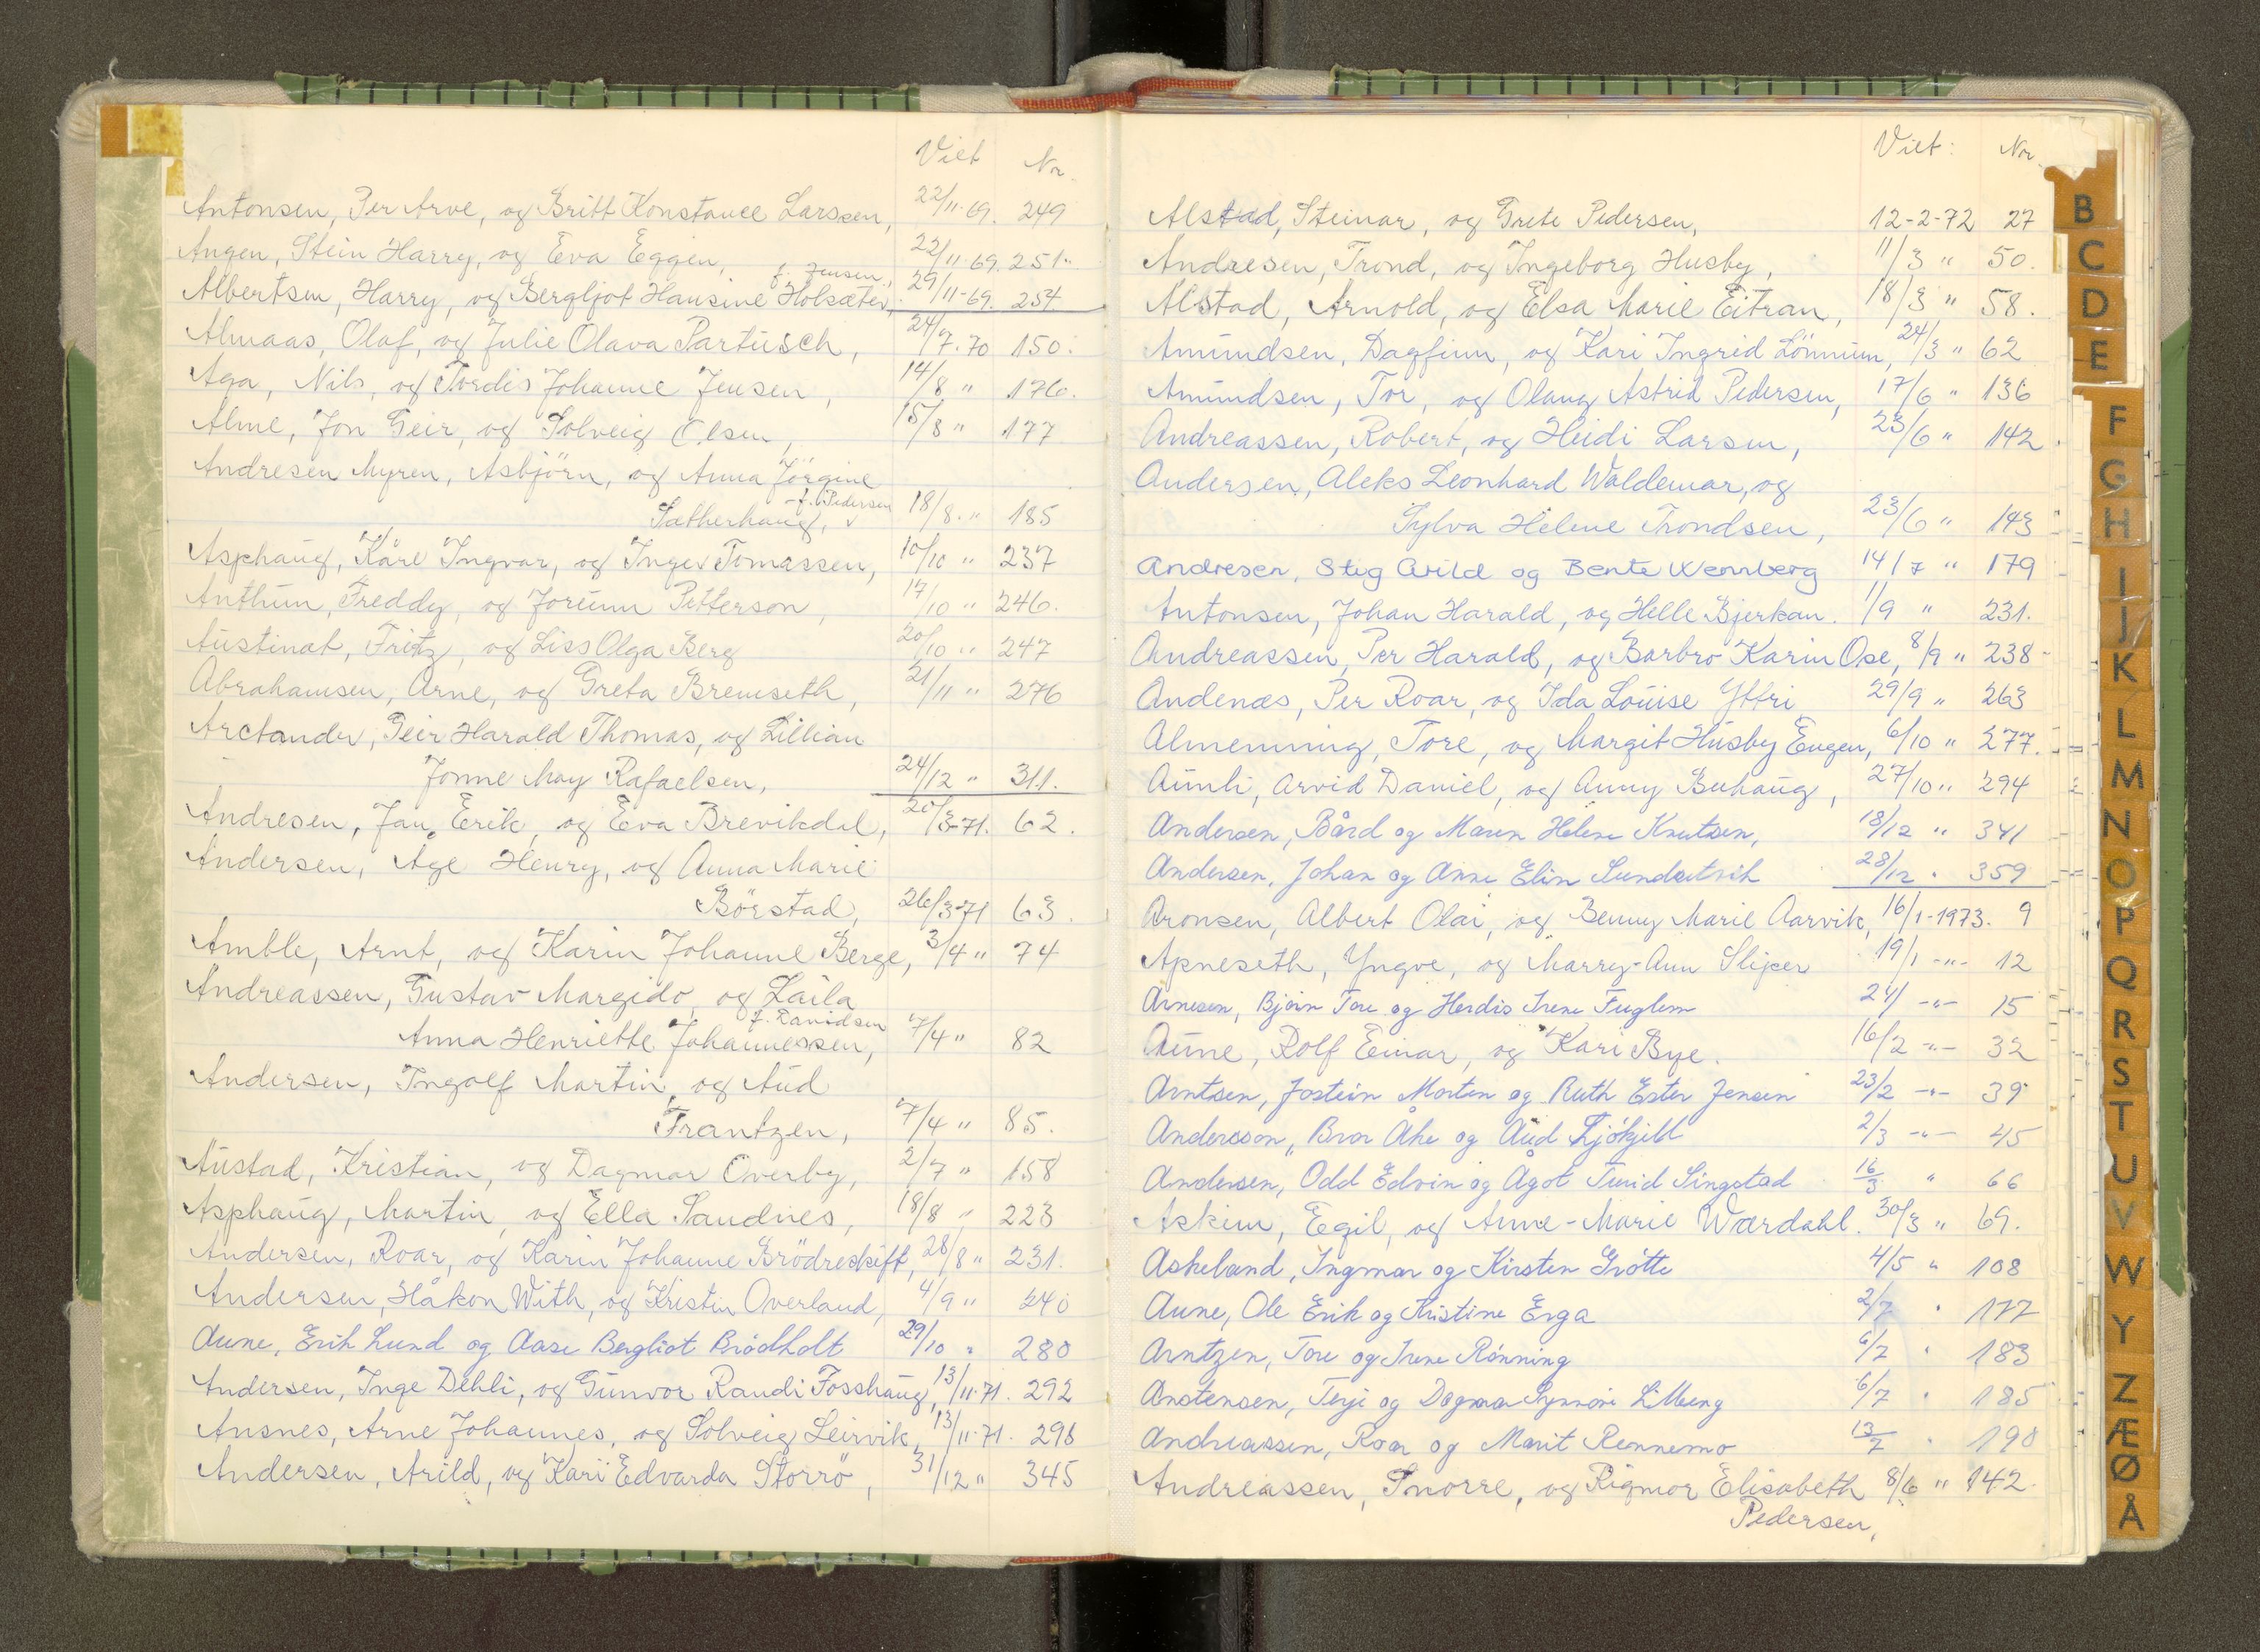 Viet Nr.
Antonsen, Per Arve, og Britt Konstance Larssen, 22/11-69. 249
Angen, Stein Harry, og Eva Eggen, 22/11-69. 251.
f. Jensen
Albertsen, Harry, og Bergljot Hansine Holsæter, 29/11-69. 254.
Almaas, Olaf, og Julie Olava Partüsch, 24/7.70 150.
Aga, Nils, og Tordis Johanne Jensen, 14/8 " 176.
Alme, Jon Geir, og Solveig Olsen, 15/8 " 177
Andresen Myren, Asbjörn, og Anna Jörgine
f. Pedersen
Sætherhaug, 18/8. " 185
Asphaug, Kåre Ingvar, og Inger Tomassen, 10/10 " 237
Anthun, Freddy, og Jorunn Petterson, 17/10 " 246.
Austinat, Fritz, og Liss Olga Berg 20/10 " 247
Abrahamsen, Arne, og Greta Bremseth, 21/11 " 276
Arctander, Geir Harald Thomas, og Lillian
Jonne May Rafaelsen, 24/12 " 311.
Andresen, Jan Erik, og Eva Brevikdal, 20/3-71. 62.
Andersen, Åge Henry, og Anna Marie
Börstad, 26/3-71 63.
Amble, Arnt, og Karin Johanne Berge, 3/4 " 74
Andreassen, Gustav Margido, og Laila
f. Davidsen
Anna Henriette Johannessen, 7/4 " 82
Andersen, Ingolf Martin, og Aud
Frantzen, 7/4 " 85.
Austad, Kristian, og Dagmar Överby, 2/7 " 158
Asphaug, Martin, og Ella Sandnes, 18/8 " 223
Andersen, Roar, og Karin Johanne Brödreskift, 28/8 " 231.
Andersen, Håkon With, og Kristin Overland, 4/9 " 240
Aune, Erik Lund og Aase Bergliot Brödholt 29/10 " 280
Andersen, Inge Dehli, og Gunvor Randi Fosshaug, 13/11-71. 292
Ansnes, Arne Johannes, og Solveig Leirvik, 13/11-71. 296
Andersen, Arild, og Kari Edvarda Storrö, 31/12 " 345
Viet: Nr.
Alstad, Steinar, og Grete Pedersen, 12-2-72 27
Andresen, Trond, og Ingeborg Husby, 11/3 " 50.
Alstad, Arnold, og Elsa Marie Eitran, 18/3 " 58.
Amundsen, Dagfinn, og Kari Ingrid Lönnum, 24/3 " 62
Amundsen, Tor, og Olaug Astrid Pedersen, 17/6 " 136
Andreassen, Robert, og Heidi Larsen, 23/6 " 142
Andersen, Aleks Leonhard Waldemar, og
Sylva Helene Trondsen, 23/6 " 143
Andresen, Stig Arild og Bente Wennberg 14/7 " 179
Antonsen, Johan Harald, og Helle Bjerkan. 1/9 " 231.
Andreassen, Per Harald, og Barbro Karin Ose, 8/9 " 238
Andenæs, Per Roar, og Ida Louise Yttri 29/9 " 263
Almenning, Tore, og Margit Husby Eugen, 6/10 " 277.
Aunli, Arvid Daniel, og Anny Buhaug, 27/10 " 294
Andersen, Bård og Maren Helene Knutsen, 18/12 " 341
Andersen, Johan og Anne Elin Sundsetvik 28/12 " 359
Aronsen, Albert Olai, og Benny Marie Aarvik, 16/1-1973. 9
Apneseth, Yngve, og Marry-Ann Slijper 19/1 -"- 12
Arnesen, Bjørn Tore og Herdis Irene Fuglem 24/1 -"- 15
Aune, Rolf Einar, og Kari Bye. 16/2 -"- 32
Arntsen, Jostein Morten og Ruth Ester Jensen 23/2 -"- 39
Andersson, Bror Åke og Aud Ljökjell 2/3 -"- 45
Andersen, Odd Edvin og Ågot Turid Singstad 16/3 " 66
Askim, Egil, og Anne-Marie Wærdahl. 30/3 " 69.
Askeland, Ingmar og Kirsten Grötte 4/5 " 108
Aune, Ole Erik og Kristine Erga 2/7 " 177
Arntzen, Tore og Irene Rönning 6/7 " 183
Anstensen, Terje og Dagmar Synnöve Lilleeng 6/7 " 185
Andreassen, Roar og Marit Rennemo 13/7 " 190
Andreassen, Snorre, og Rigmor Elisabeth 8/6 " 142.
Pedersen,
B
C
D
E
F
G
H
I
J
K
L
M
N
O
P
Q
R
S
T
U
V
W
Y
Z
Æ
Ø
Å